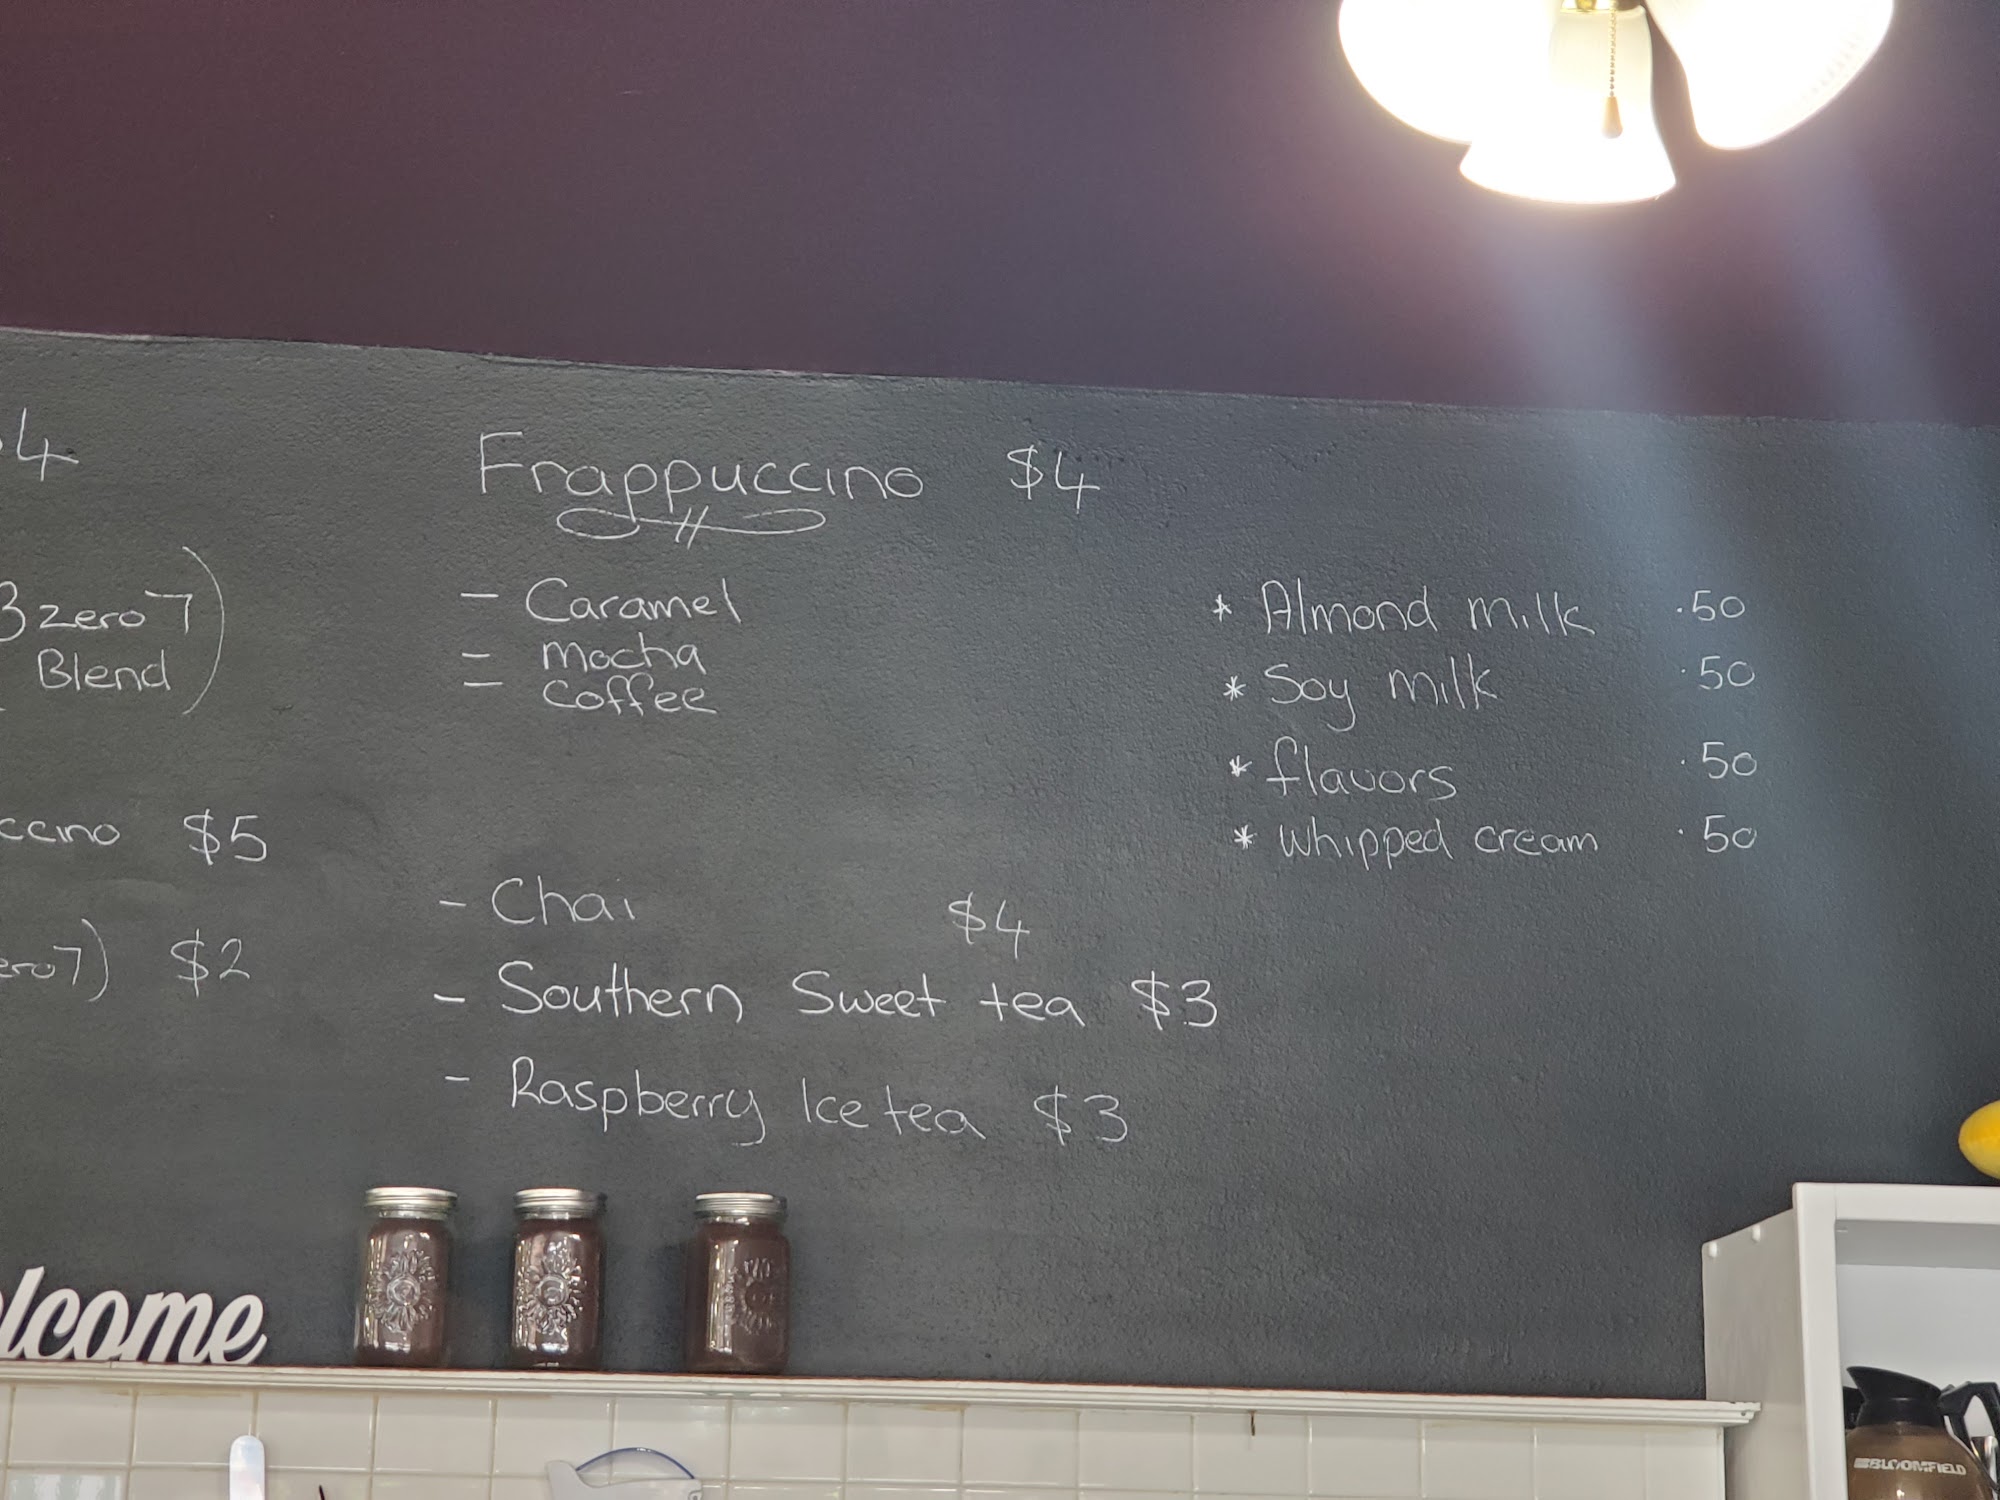 4
3zero7)
Blend
ccino $5
ero7) $2
Frappuccino $4
- Caramel
- mocha
- coffee
- Chai $4
- Southern Sweet tea $3
- Raspberry Ice tea $3
* Almond milk .50
* Soy milk .50
* flavors .50
* whipped cream .50
elcome
BLOOMFIELD